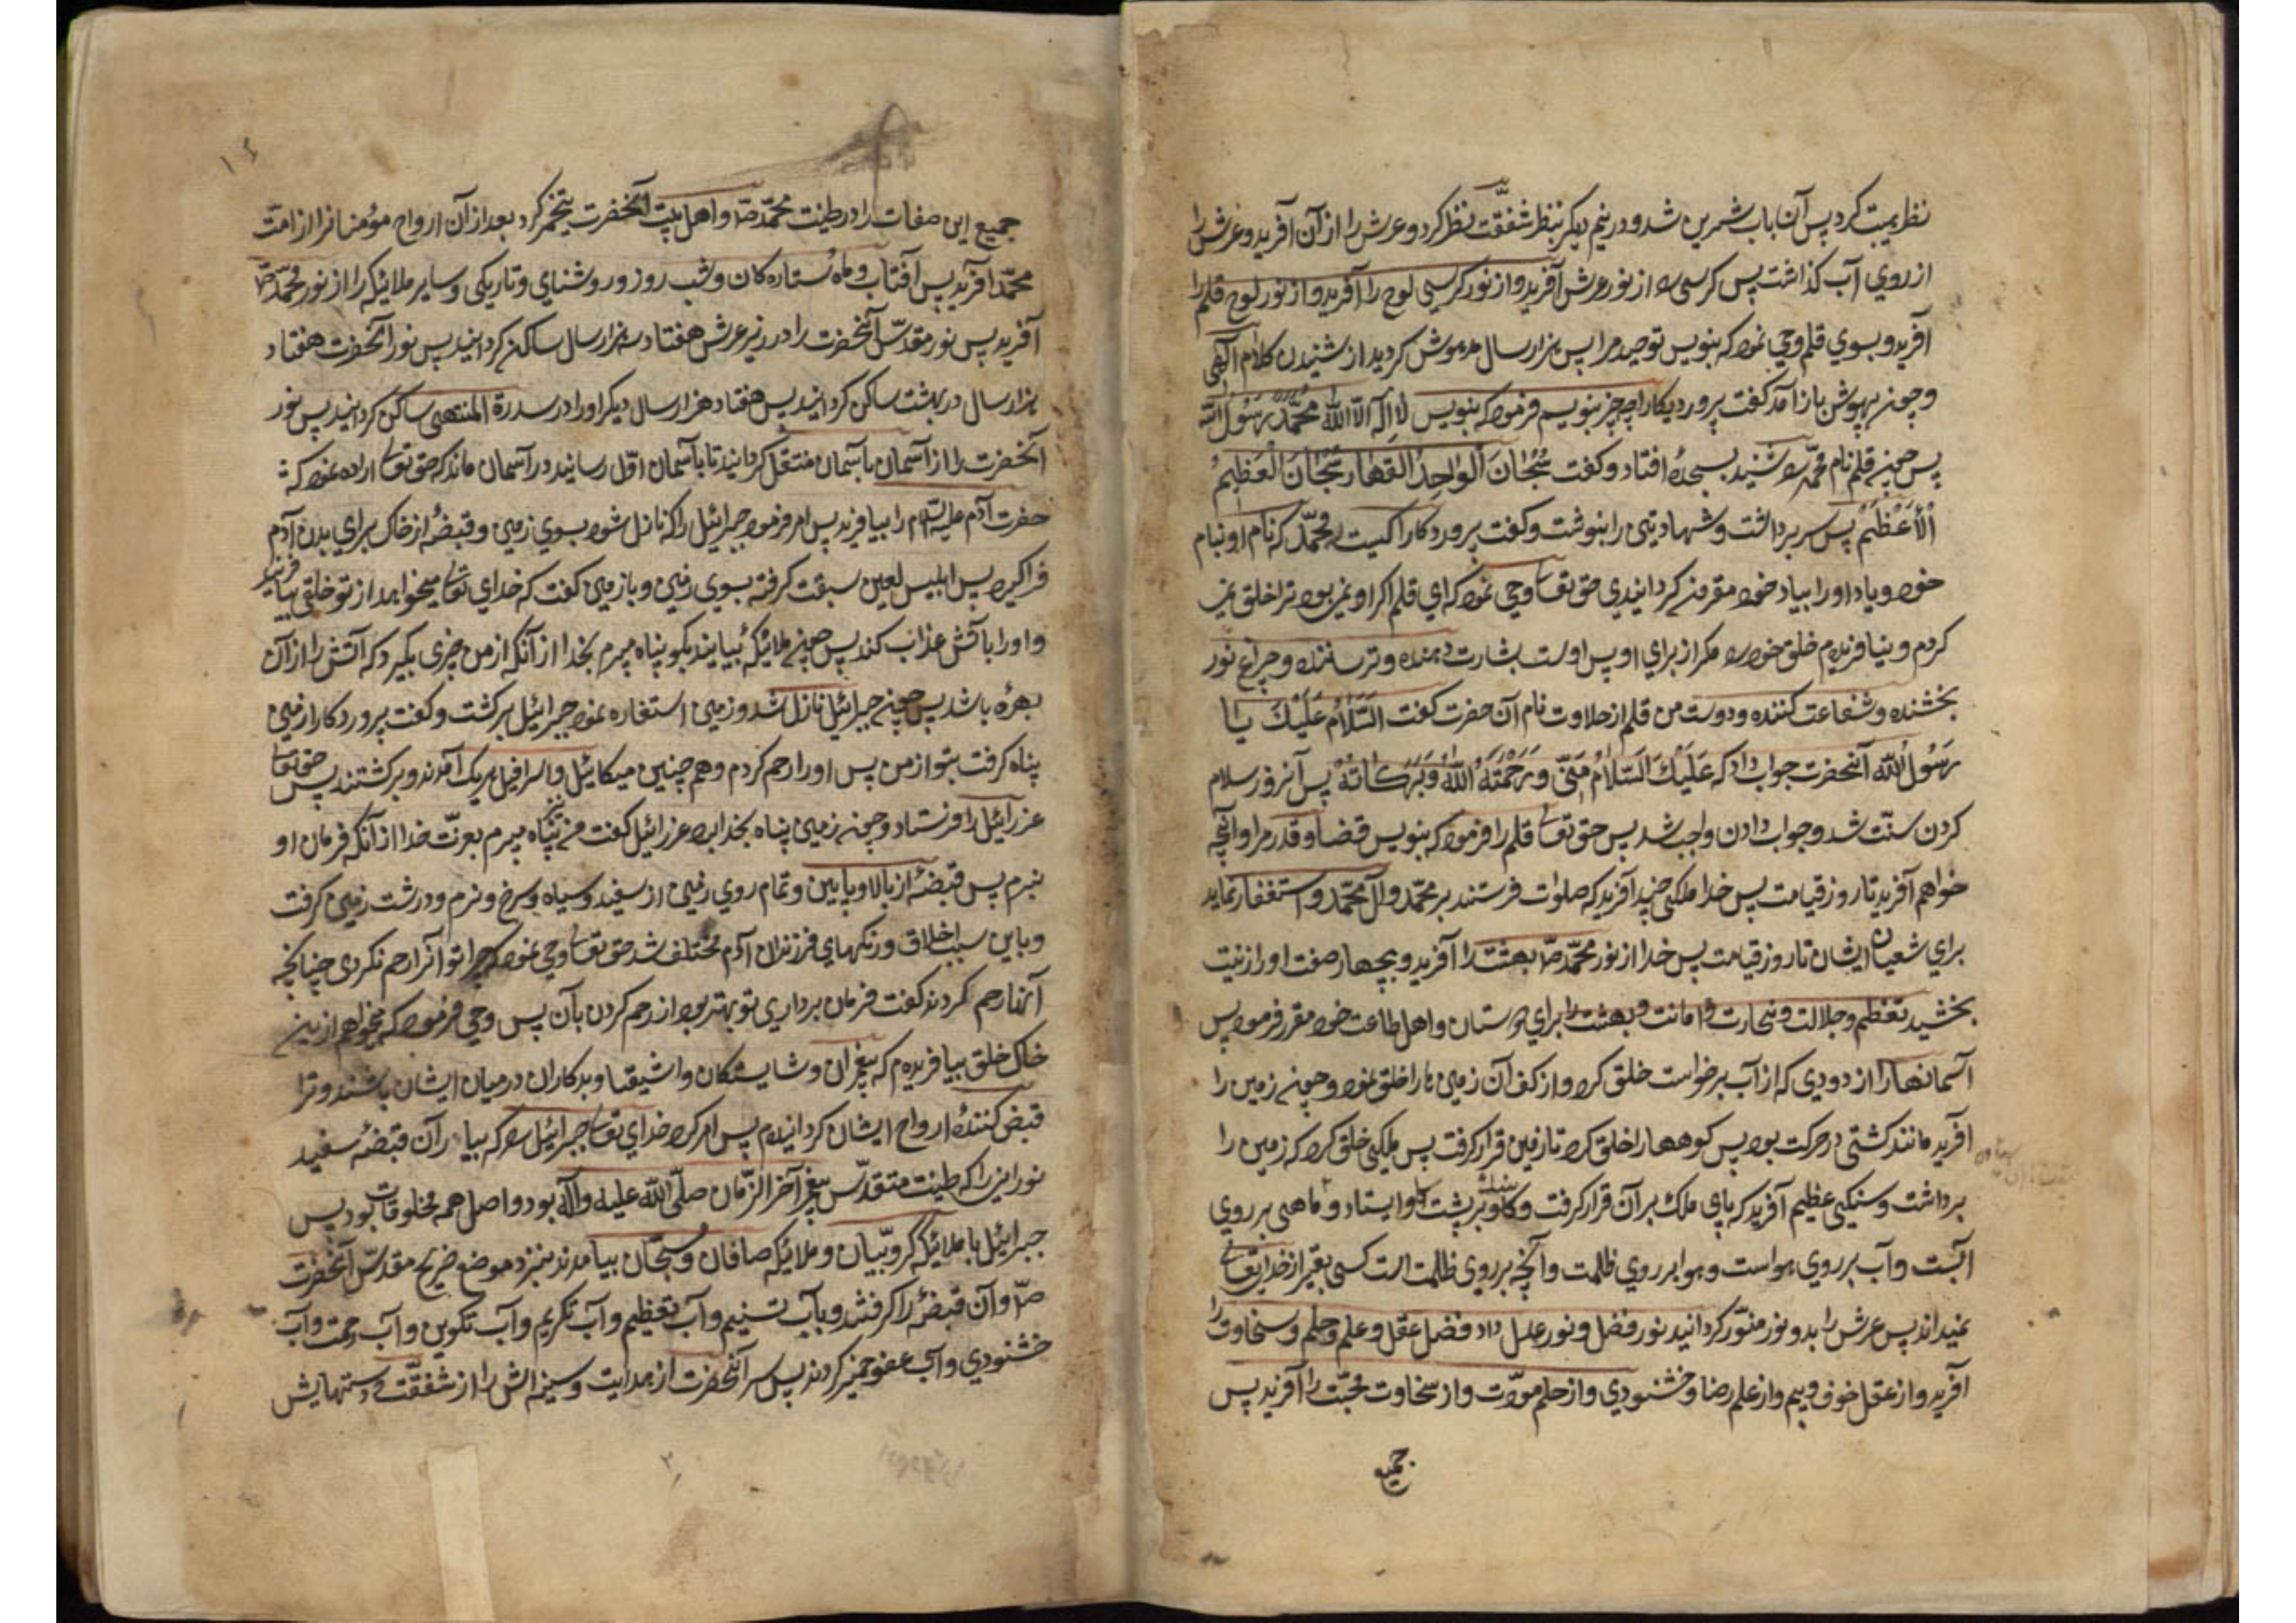 نظر هیبت کرد پس آن باب شیرین شد و در نیم دیگر بنظر شفقّت نظر کرد و عرش را از آن آفرید و عرش را
از روی آب گذاشت پس کرسی را از نور عرش آفرید و از نور کرسی لوح را آفرید و از نور لوح قلم را
آفرید و بسوی قلم وحی نمود که بنویس توحید مرا پس هزار سال مدهوش گردید از شنیدن کلام الهی
و چون بهوش باز آمد گفت پروردگارا چه چیز بنویسم فرمود که بنویس لا اله الا الله محمّد رسول الله
پس چون قلم نام محمّد را شنید بسجده افتاد و گفت سُبْحانَ الواحِدُ القهّار سُبْحانَ العَظیمُ
الْأَعْظَمْ پس سر برداشت و شهادتین را بنوشت و گفت پروردگارا کیست محمّد که نام او بنام
خود و یاد او را بیاد خود مقرون گردانیدی حق تعا وحی نمود که ای قلم اگر او نمی بود ترا خلق نمی
کردم و نیافریدم خلق خود را مگر از برای او پس اوست بشارت دهنده و ترساننده و چراغ نور
بخشنده و شفاعت کننده و دوست من قلم از حلاوت نام آن حضرت گفت السّلام عَلَیْكَ یا
رَسُولَ اللّه آنحضرت جواب داد که عَلَیْكَ السّلامُ مِنّی وَ رَحْمَتَهُ اللّهُ وَ بَرَكاتَهْ پس آنروز سلام
کردن سنّت شد و جواب دادن واجب شد پس حق تعا قلم را فرمود که بنویس قضا و قدر مرا و آنچه
خواهم آفرید تا روز قیامت پس خدا ملکی چند آفرید که صلوات فرستند بر محمّد و آل محمّد و استغفار نماید
برای شعیان ایشان تا روز قیامت پس خدا از نور محمّد ص بهشت را آفرید و بچهار صفت او را زینت
بخشید تعظیم و جلالت و سخاوت و امانت و بهشت را برای دوستان و اهل طاعت خود مقرر فرمود پس
آسمانها را از دودی که از آب برخواست خلق کرد و از کف آن زمین ها را خلق نمود و چون زمین را
آفرید مانند کشتی در حرکت بود پس کوهها را خلق کرد تا زمین قرار گرفت پس ملکی خلق کرد که زمین را
برداشت و سنگی عظیم آفرید که پای ملك بر آن قرار گرفت و گاو بر پشت گاو ایستاد و ماهی بر روی
آبست و آب بر روی هواست و هوا بر روی ظلمت و آنچه بر روی ظلمت است کسی بغیر از خدایتعا
نمیداند پس عرش را بدو نور منوّر گردانید نور فضل و نور عدل داد فضل عقل و علم و حلم و سخاوت را
آفرید و از عقل خوف و بیم و از علم رضا و خشنودی و از حلم مودّت و از سخاوت محبّت را آفرید پس
جمیع
۱۴
جمیع این صفات را در طینت محمّد ص و اهل بیت آنحضرت تخمیر کرد بعد از آن ارواح مؤمنانرا از امّت
محمّد آفرید پس آفتاب و ماه ستاره کان و شب روز و روشنای و تاریکی و سایر ملائیکه را از نور محمّد ص
آفرید پس نور مقدّس آنحضرت را در زیر عرش هفتاد هزار سال ساکن گردانید پس نور آنحضرت هفتاد
هزار سال در بهشت ساکن گردانید پس هفتاد هزار سال دیگر او را در سدرة المنتهی ساکن گردانید پس نور
آنحضرت را از آسمان بآسمان منتقل گردانید تا بآسمان اوّل رسانید و در آسمان ماند که حق تعا اراده نمود که
حضرت آدم علیه السّلام را بیافرید پس امر فرمود جبرائیل را که نازل شود بسوی زمین و قبضهٔ از خاک برای بدن آدم
فراگیرد پس ابلیس لعین سبقت گرفته بسوی زمین و با زمین گفت که خدای تعا میخواهد از تو خلقی بیافریند
و او را بآتش عذاب کند پس چون ملائیکه بیایند بگو پناه میبرم بخدا از آنکه از من چیزی بگیرد که آتش را از آن
بهرهٔ باشد پس چون جبرائیل نازل شد و زمین استغاره نمود جبرائیل برگشت و گفت پروردگارا زمین
پناه گرفت بتو از من پس او را رحم کردم و هم چنین میکائیل و اسرافیل هریک آمدند و برگشتند پس حق تعا
عزرائیل را فرستاد و چون زمین پناه بخدا برد عزرائیل گفت من نیز پناه میبرم بعزّت خدا از آنکه فرمان او
نبرم پس قبضهٔ از بالا و پایین و تمام روی زمین از سفید و سیاه و سرخ و نرم و درشت زمین گرفت
و باین سبب اخلاق و رنگهای فرزندان آدم مختلف شد حق تعا وحی نمود که چرا تو آنرا رحم نکردی چنانچه
آنها رحم کردند گفت فرمان برداری تو بهتر بود از رحم کردن بآن پس وحی فرمود که میخواهم از این
خاک خلق بیافریدم که پیغمبران و شایستگان و اشیقیا و بدکاران در میان ایشان باشند و ترا
قبض کنندهٔ ارواح ایشان گردانیدم پس امر کرد خدای تعا جبرائیل را که بیا رآن قبضهٔ سفید
نورانی را که طینت متقدّس پیغمبر آخر الزّمان صلّی اللّه علیه و آله بود و اصل همه مخلوقات بود پس
جبرائیل با ملائیکه کروبّیان و ملائیکه صافان و مسبّحان بیامدند بنزد موضع ضریح مقدّس آنحضرت
ص و آن قبضهٔ را گرفتند و بآب تسنیم و آب تعظیم و آب تکریم و آب تکوین و آب رحمت و آب
خشنودی و آب عفو خمیر کردند پس سر آنحضرت از هدایت و سینه اش را از شفقّت و دستهایش
۲